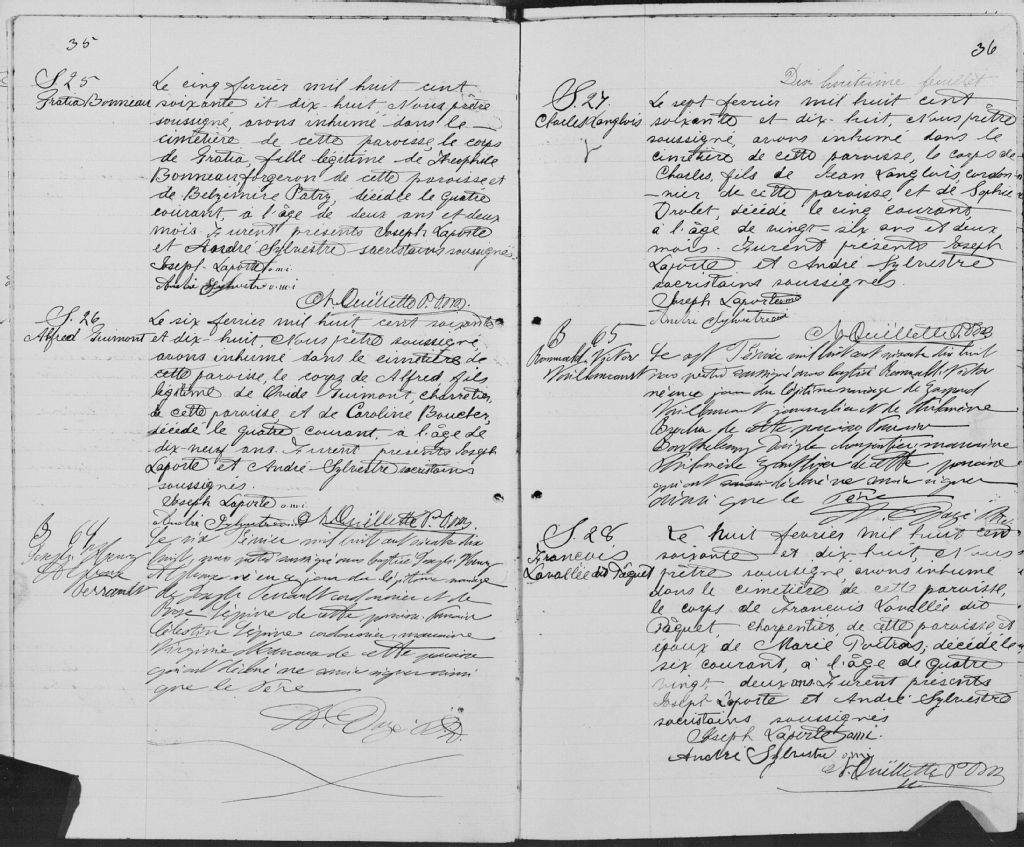 35
S. 25
Gratia Bonneau
Le cinq fevrier mil huit cent
soixante et dix-huit Nous prêtre
soussigné, avons inhumé dans le
cimetière de cette paroisse, le corps
de Gratia, fille légitime de Theophile
Bonneau forgeron de cette paroisse et
de Belzemire Patry, décédée le quatre
courant, à l'âge de deux ans et deux
mois. Furent présents Joseph Laporte
et André Sylvestre sacristains soussignés.
Joseph Laporte o.m.i
André Sylvestre o.m.i
Ouëllette P. O.M.I.
S. 26
Alfred Guimont
Le six fevrier mil huit cent soixante
et dix-huit, Nous prêtre soussigné,
avons inhumé dans le cimetière de
cette paroisse, le corps de Alfred fils
légitime de Guimont, charretier,
de cette paroisse et de Caroline Boucher,
décédé le quatre courant, à l'âge de
dix-neuf ans. Furent présents Joseph
Laporte et André Sylvestre sacristains
soussignés.
Joseph Laporte o.m.i
André Sylvestre o.m.i Ouëllette P. O.M.I.
B 64
Joseph Henry
Alphonse
Perrault
Le six Février mil huit cent soixante dix
huit nous prêtre soussigné avons baptisé Joseph Henry
Alphonse né en ce jour du légitime mariage
de Joseph Perrault cordonnier et de
Rose Lépine de cette paroisse Parrain
Célestin Lépine cordonnier, marraine
Virginie de cette paroisse
qui ont déclaré ne savoir signer ainsi
que le Père
36
Dix huitième feuillet
S. 27
Charles Langlois
Le sept fevrier mil huit cent
soixante et dix-huit, Nous prêtre
soussigné, avons inhumé dans le
cimetière de cette paroisse, le corps de
Charles, fils de Jean Langlois, cordon-
nier de cette paroisse, et de Sophie
Drolet, décédé le cinq courant,
à l'âge de vingt-six ans et deux
mois. Furent présents Joseph
Laporte et André Sylvestre
sacristains soussignés.
Joseph Laporte omi
André Sylvestre omi
Ouëllette P. O.M.I.
B 65
Romuald Victor
Le sept Février mil huit cent soixante dix huit
nous prêtre soussigné avons baptisé Romuald Victor
né en ce jour du légitime mariage de
journalier et de
de cette paroisse Parrain
Barthelemy Daigle charpentier, marraine
Gauthier de cette paroisse
qui ont déclaré ne savoir signer
ainsi que le Père
S. 28
Francois
Lavallée dit Pâquet
Le huit fevrier mil huit cent
soixante et dix-huit, Nous
prêtre soussigné avons inhumé
dans le cimetière de cette paroisse,
le corps de Francois Lavallée dit
Pâquet, charpentier, de cette paroisse et
époux de Marie Poitras, décédé le
six courant, à l'âge de quatre
vingt deux ans. Furent presents
Joseph Laporte et André Sylvestre
sacristains soussignés
Joseph Laporte omi.
André Sylvestre o.m.i
Ouëllette P. O.M.I.